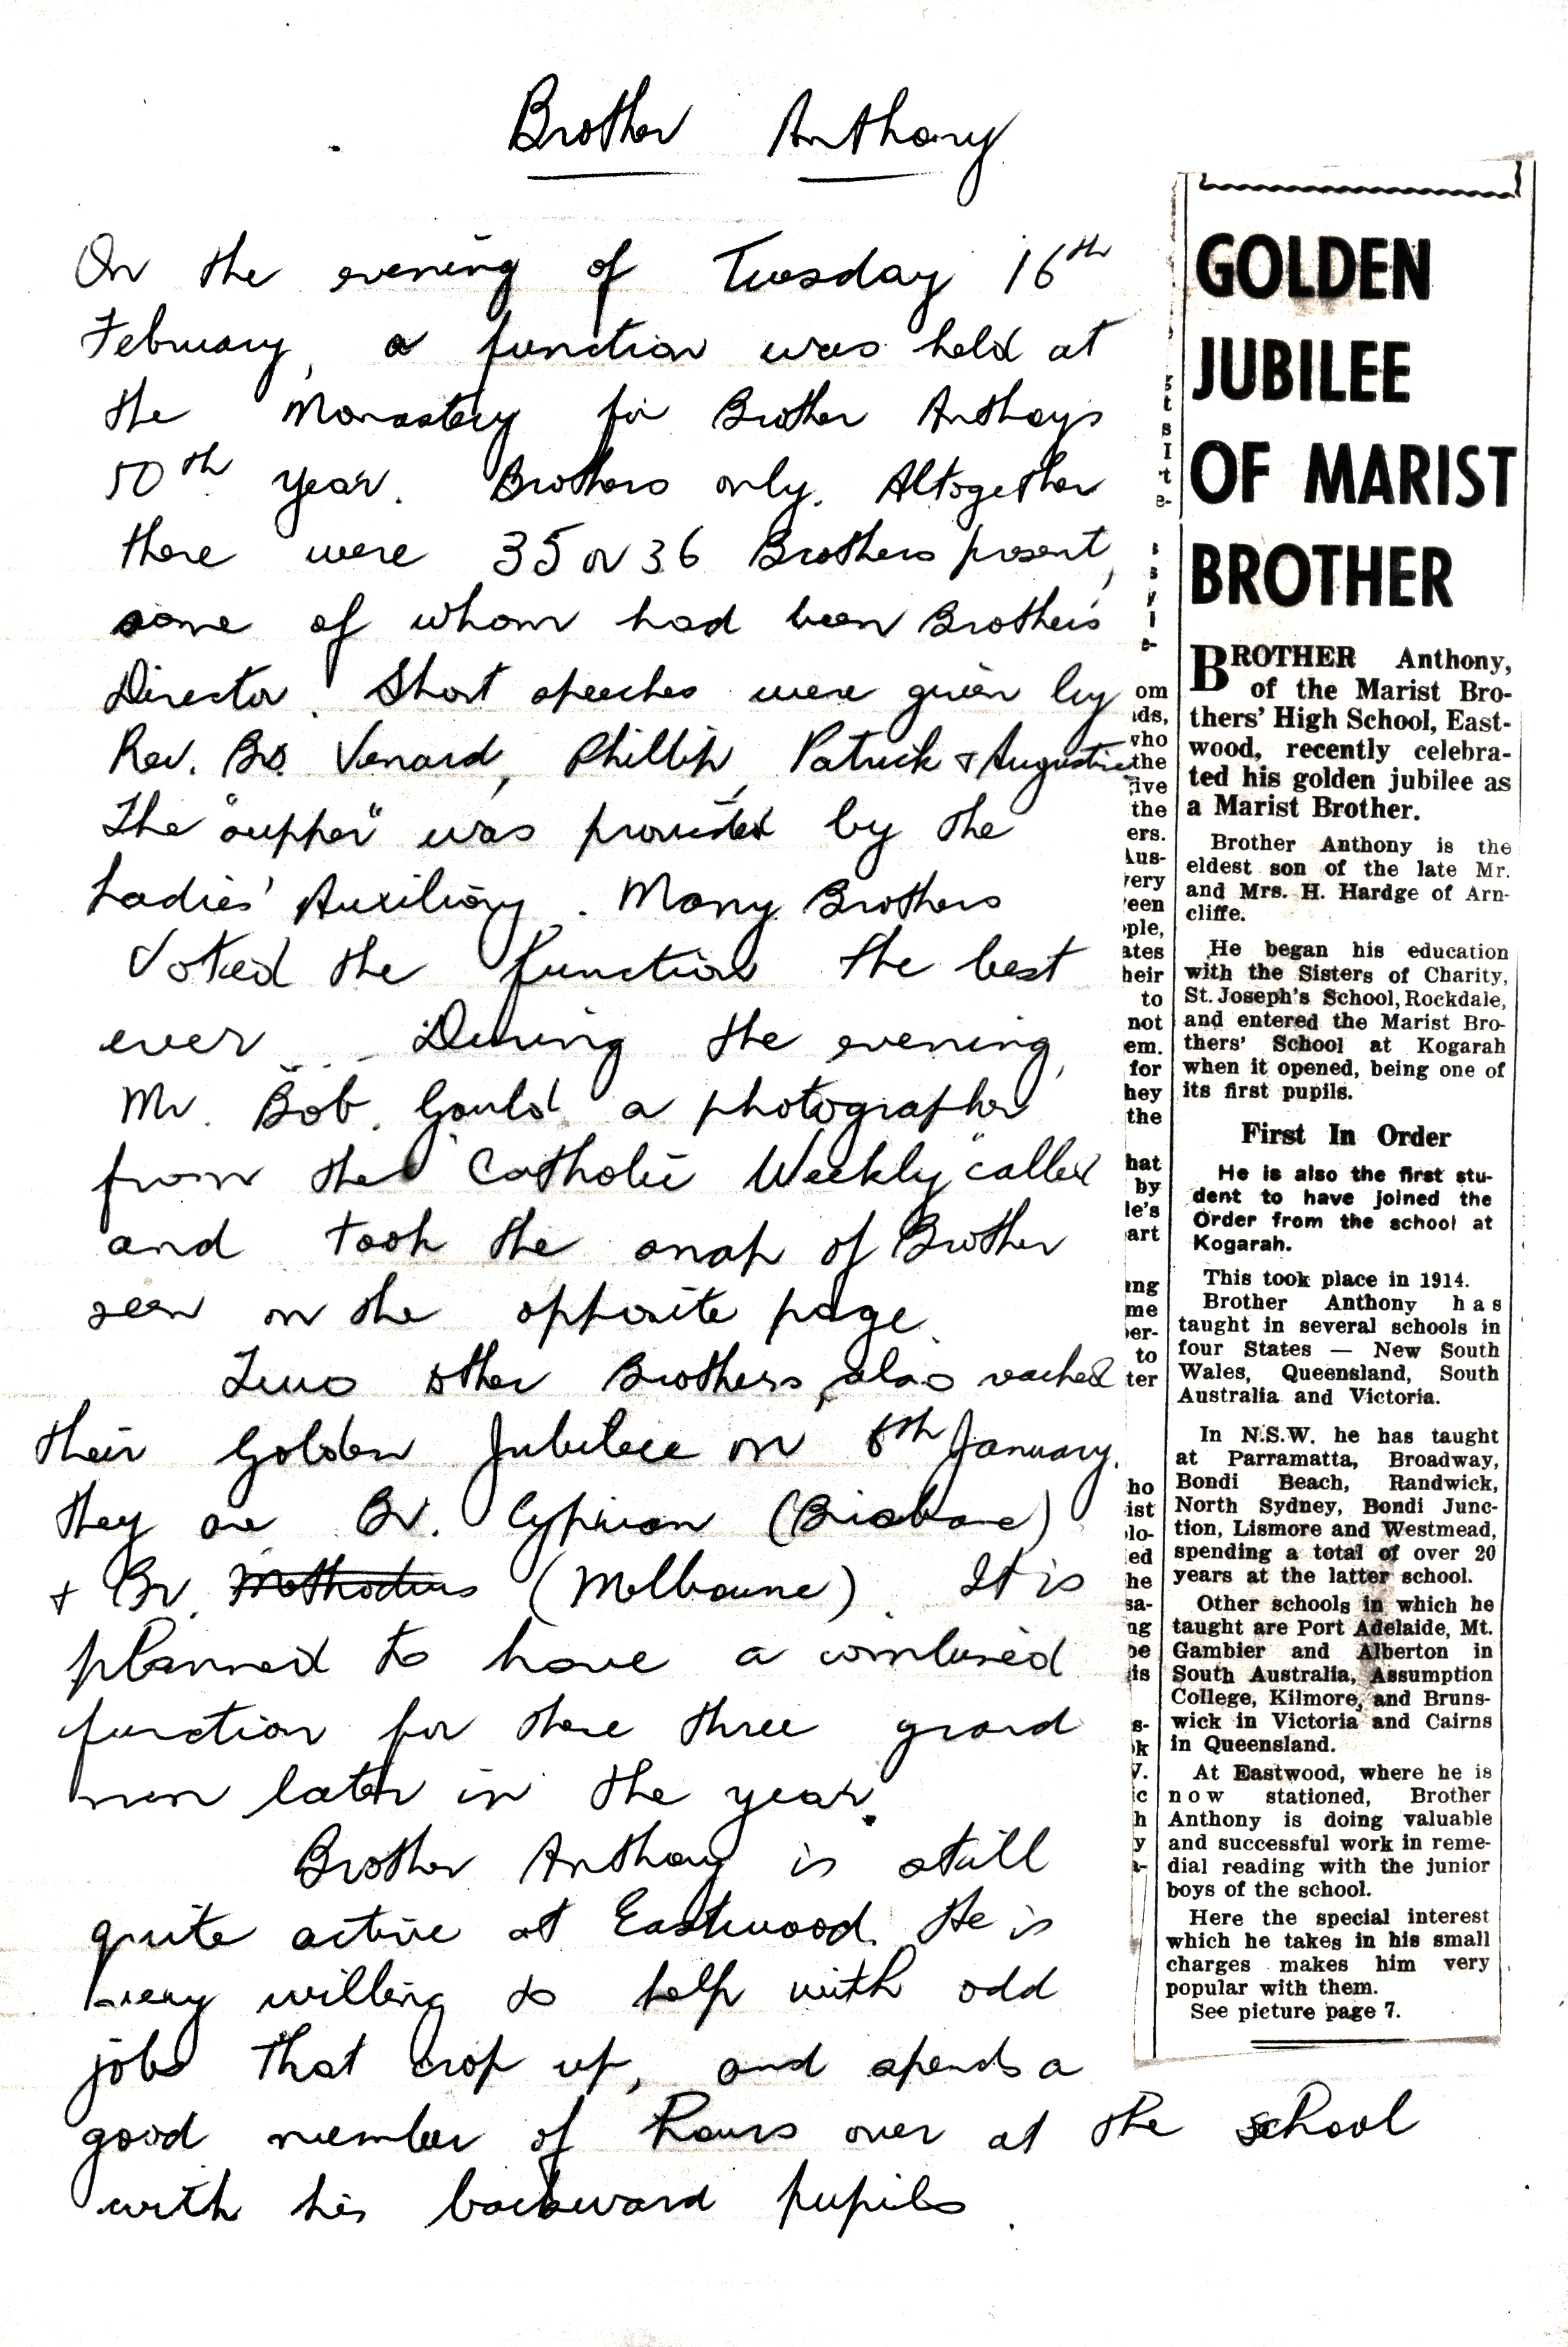 Brother Anthony
On the evening of Tuesday 16th
February, a function was held at
the Monastery for Brother Anthoys
50th year. Brothers only. Altogether
there were 35 or 36 Brothers present,
some of whom had been Brothers
Director. Short speeches were given by
Rev. Bro. Venard, Phillip, Patrick & Augustine
The "supper" was provided by the
Ladies' Auxiliary. Many Brothers
voted the function the best
ever. During the evening,
Mr. Bob Gould a photographer
from the "Catholic Weekly" called
and took the snap of Brother
seen on the opposite page.
Two other Brothers, also reached
their Golden Jubilee on 6th January.
they are Br. Cyprian (Brisbane)
& Br. Methodius (Melbourne). It is
planned to have a combined
function for these three grand
men later in the year.
Brother Anthony is still
quite active at Eastwood. He is
very willing to help with odd
jobs that crop up, and spends a
good number of hours over at the school
with his backward pupils.
GOLDEN
JUBILEE
OF MARIST
BROTHER
BROTHER Anthony,
of the Marist Bro-
thers' High School, East-
wood, recently celebra-
ted his golden jubilee as
a Marist Brother.
Brother Anthony is the
eldest son of the late Mr.
and Mrs. H. Hardge of Arn-
cliffe.
He began his education
with the Sisters of Charity,
St. Joseph's School, Rockdale,
and entered the Marist Bro-
thers' School at Kogarah
when it opened, being one of
its first pupils.
First In Order
He is also the first stu-
dent to have joined the
Order from the school at
Kogarah.
This took place in 1914.
Brother Anthony has
taught in several schools in
four States — New South
Wales, Queensland, South
Australia and Victoria.
In N.S.W. he has taught
at Parramatta, Broadway,
Bondi Beach, Randwick,
North Sydney, Bondi Junc-
tion, Lismore and Westmead,
spending a total of over 20
years at the latter school.
Other schools in which he
taught are Port Adelaide, Mt.
Gambier and Alberton in
South Australia, Assumption
College, Kilmore, and Bruns-
wick in Victoria and Cairns
in Queensland.
At Eastwood, where he is
now stationed, Brother
Anthony is doing valuable
and successful work in reme-
dial reading with the junior
boys of the school.
Here the special interest
which he takes in his small
charges makes him very
popular with them.
See picture page 7.